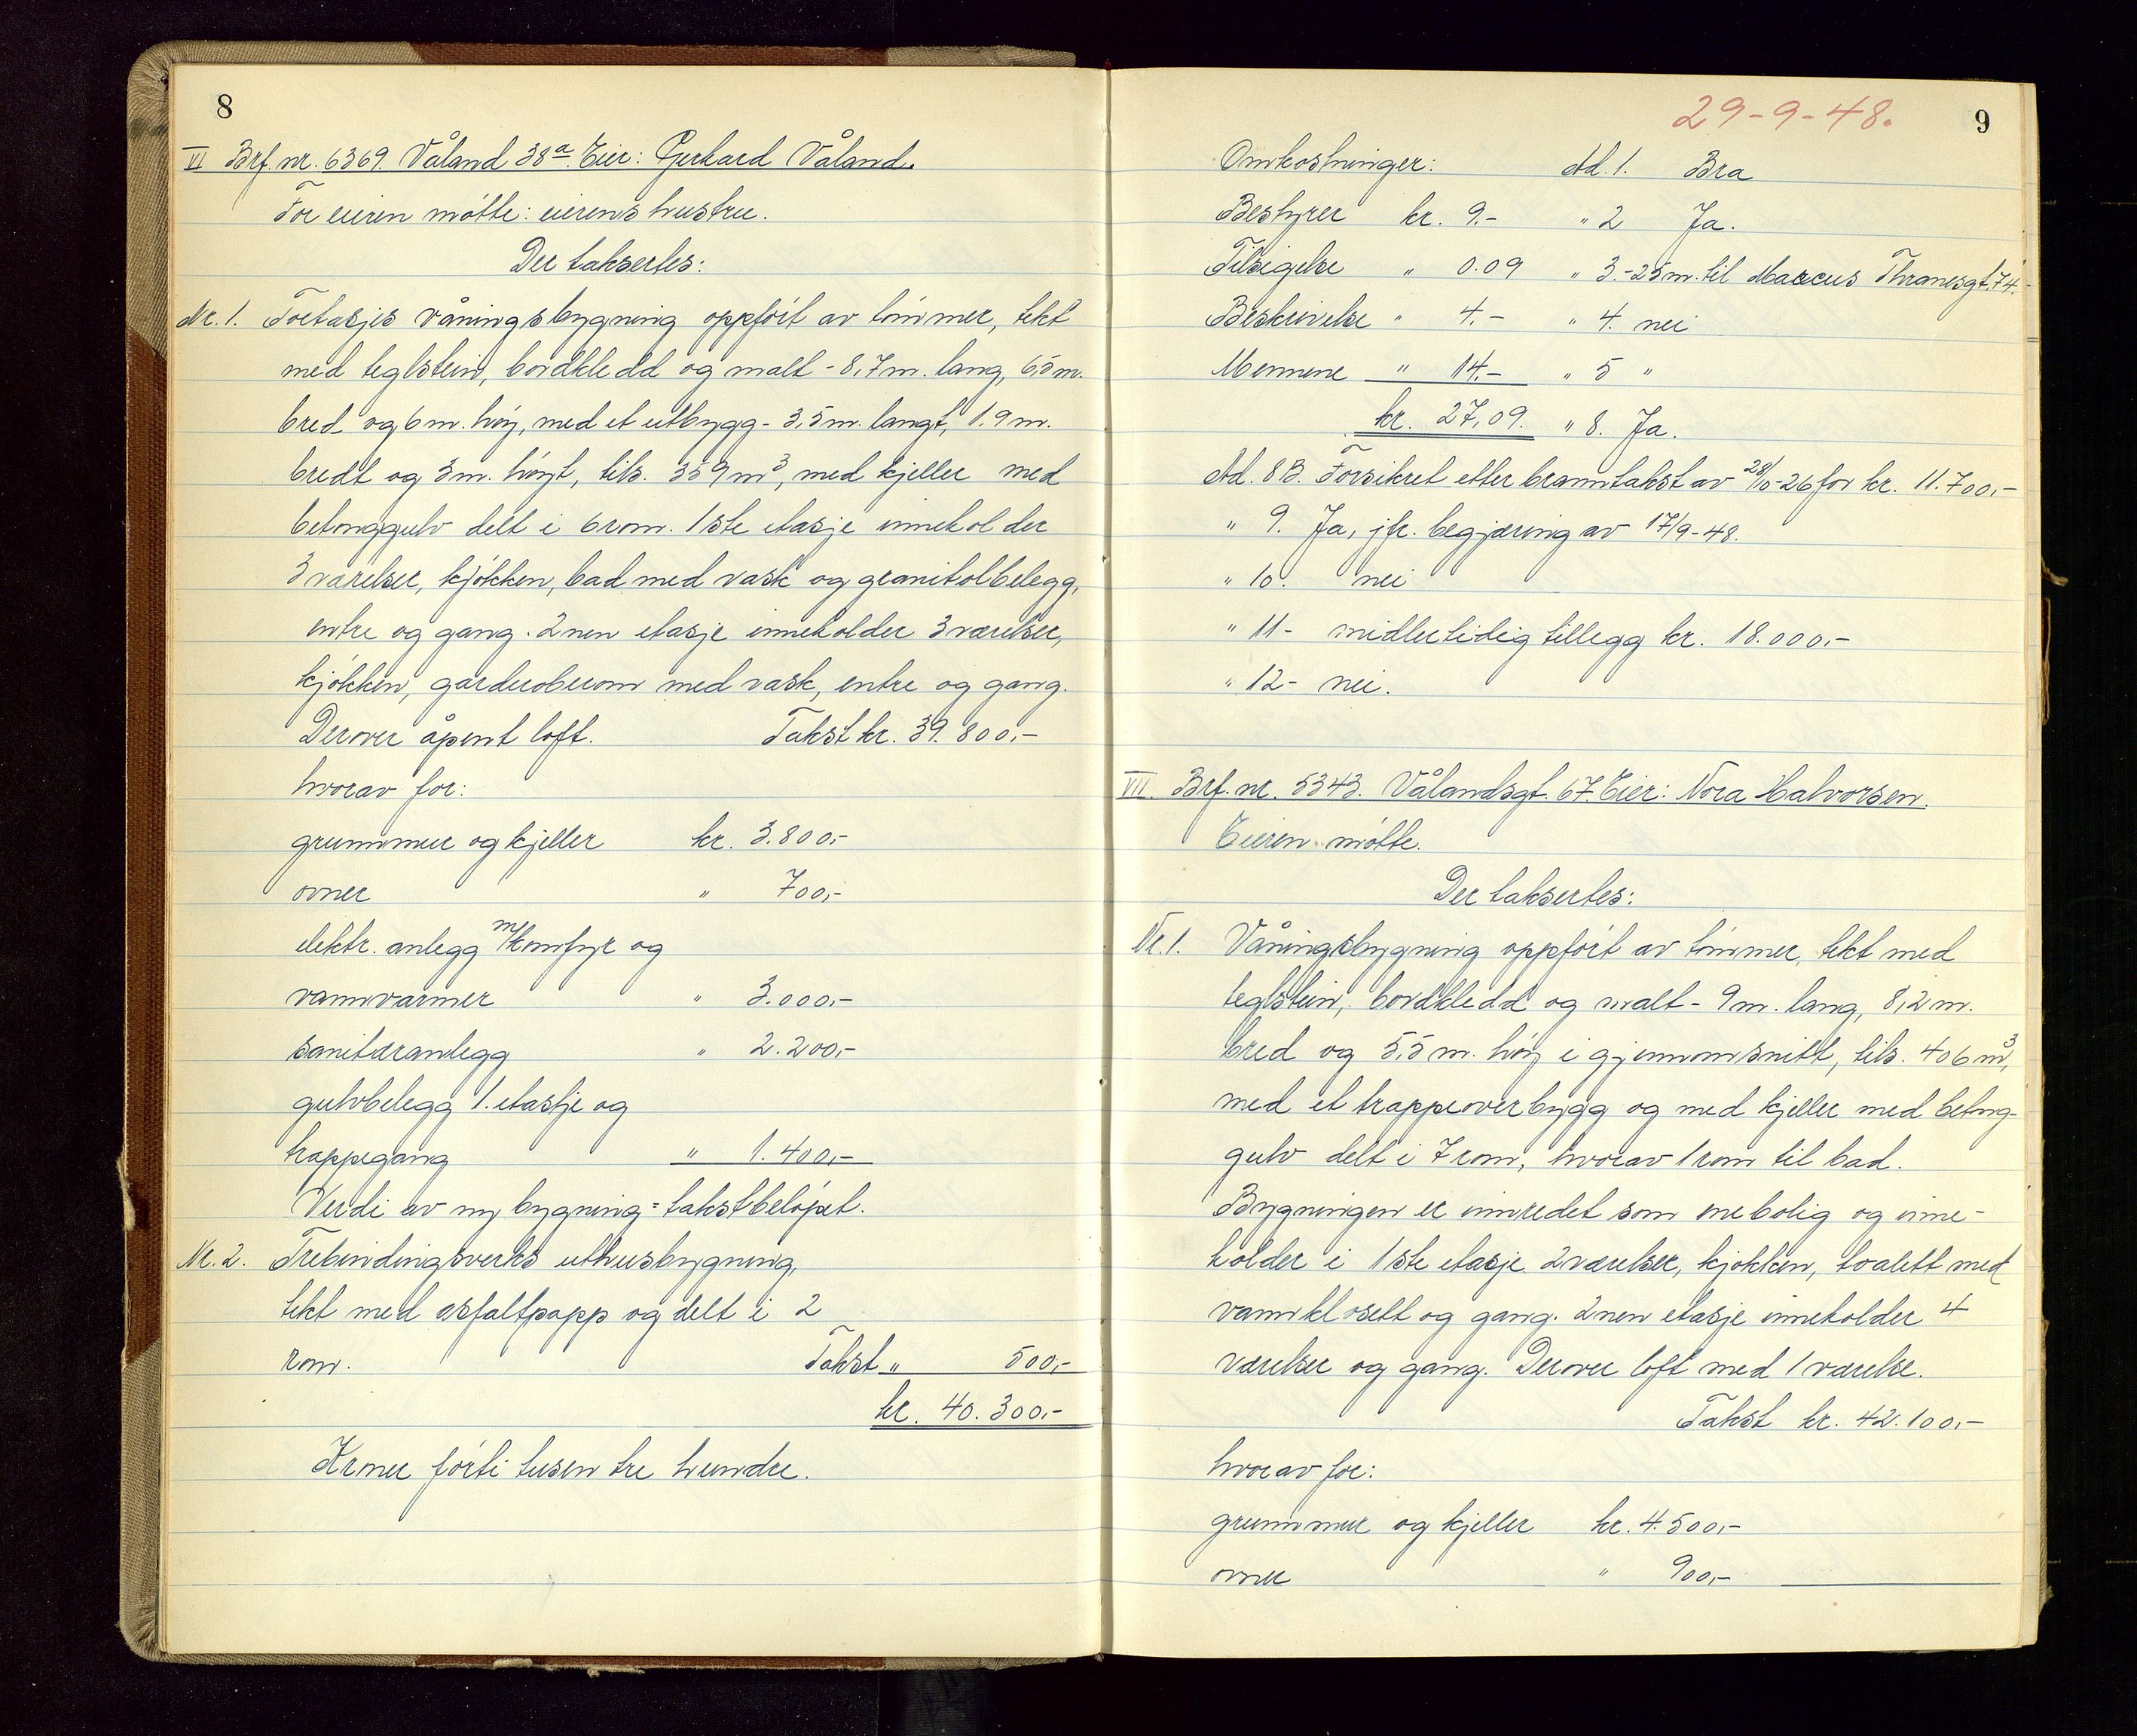 8
VI Brf. nr. 6369. Våland 38ª. Eier: Gerhard Våland.
For eieren møtte: eierens hustru.
Der taksertes:
Nr. 1. Toetasjes våningsbygning oppført av tømmer, tekt
med teglstein, bordkledd og malt - 8,7 m. lang, 6,5 m.
bred og 6 m. høy, med et utbygg - 3,5 m. langt, 1,9 m.
bredt og 3 m. høyt, tils. 359 m³, med kjeller med
betonggulv delt i 6 rom. 1ste etasje inneholder
3 værelser, kjøkken, bad med vask og granitolbelegg,
entre og gang. 2nen etasje inneholder 3 værelser,
kjøkken, garderoberom med vask, entre og gang.
Derover åpent loft. Takst kr. 39.800,-
hvorav for:
grunnmur og kjeller kr. 3.800,-
ovner " 700,-
elektr. anlegg m/komfyr og
vannvarmer " 3.000,-
sanitæranlegg " 2.200,-
gulvbelegg 1. etasje og
trappegang " 1.400,-
Verdi av ny bygning = takstbeløpet.
Nr. 2. Trebindingsverks uthusbygning,
tekt med asfaltpapp og delt i 2
rom. Takst " 500,-
kr. 40.300,-
Kroner førti tusen tre hundre.
29-9-48.
9
Omkostninger: Ad. 1. Bra
Bestyrer kr. 9.- " 2 Ja.
Tilsigelse " 0.09 " 3.- 25 m. til Marcus Thranesgt. 74.-
Beskrivelse " 4.- " 4. nei
Mennene " 14.- " 5 "
kr. 27,09. " 8. Ja.
Ad. 8 B. Forsikret etter branntakst av 28/10-26 for kr. 11.700,-
" 9. Ja, jfr. begjæring av 17/9-48.
" 10. nei
" 11- midlertidig tillegg kr. 18.000,-
" 12- nei.
VII. Brf. nr. 5343. Vålandsgt. 67. Eier: Nora Halvorsen.
Eieren møtte.
Der taksertes:
Nr. 1. Våningsbygning oppført av tømmer, tekt med
teglstein, bordkledd og malt - 9 m. lang, 8,2 m.
bred og 5,5 m. høy i gjennomsnitt, tils. 406 m³,
med et trappeoverbygg og med kjeller med betong-
gulv delt i 7 rom, hvorav 1 rom til bad.
Bygningen er innredet som enebolig og inne-
holder i 1ste etasje 2 værelser, kjøkken, toalett med
vannklosett og gang. 2nen etasje inneholder 4
værelser og gang. Derover loft med 1 værelse.
Takst kr. 42.100,-
hvorav for:
grunnmur og kjeller kr. 4.500,-
ovner " 900,-